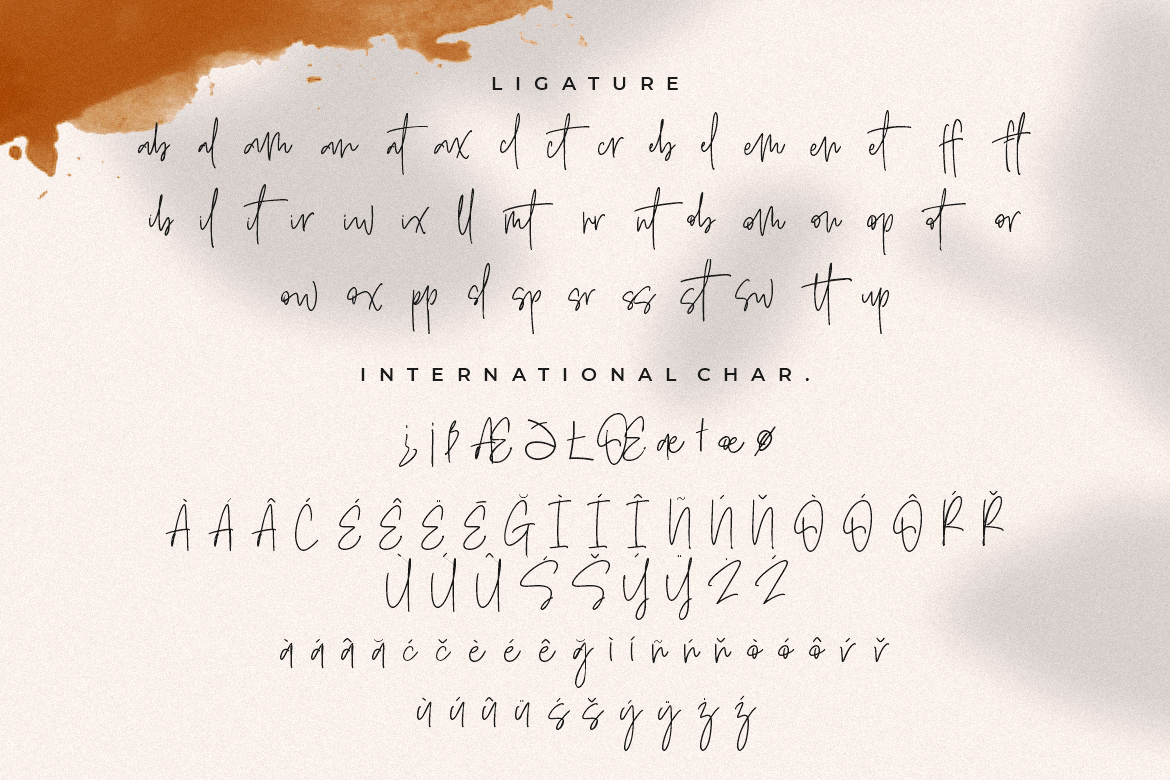 LIGATURE
ab al am an at ax cl ct cr eb el em en et ff ft
ib il it ir iw ix ll mt nr nt ob om on op ot or
ow ox pp sl sp sr ss st sw tt up
INTERNATIONAL CHAR.
¿ ¡ ß Æ Ə Ł Œ æ ł œ ø
À Á Â Ć É Ê Ë Ē Ğ Ì Í Î Ñ Ń Ň Ò Ó Ô Ŕ Ř
Ù Ú Û Ś Š Ý Ÿ Ż Ź
à á â ă ć č è é ê ğ ì í ñ ń ň ò ó ô ŕ ř
ù ú û ü ś š ý ÿ ż ź